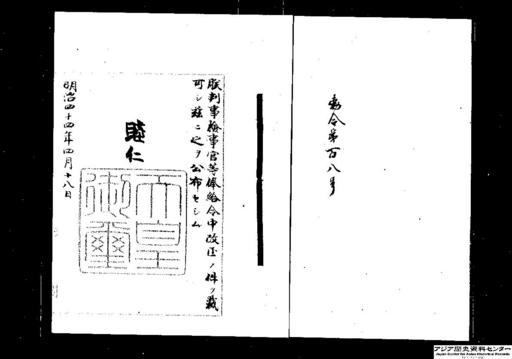 勅令第百八号
朕判事検事官等俸給令中改正ノ件ヲ裁
可シ茲ニ之ヲ公布セシム
睦仁
天皇
御璽
明治四十四年四月十八日
アジア歴史資料センター
Japan Center for Asian Historical Records